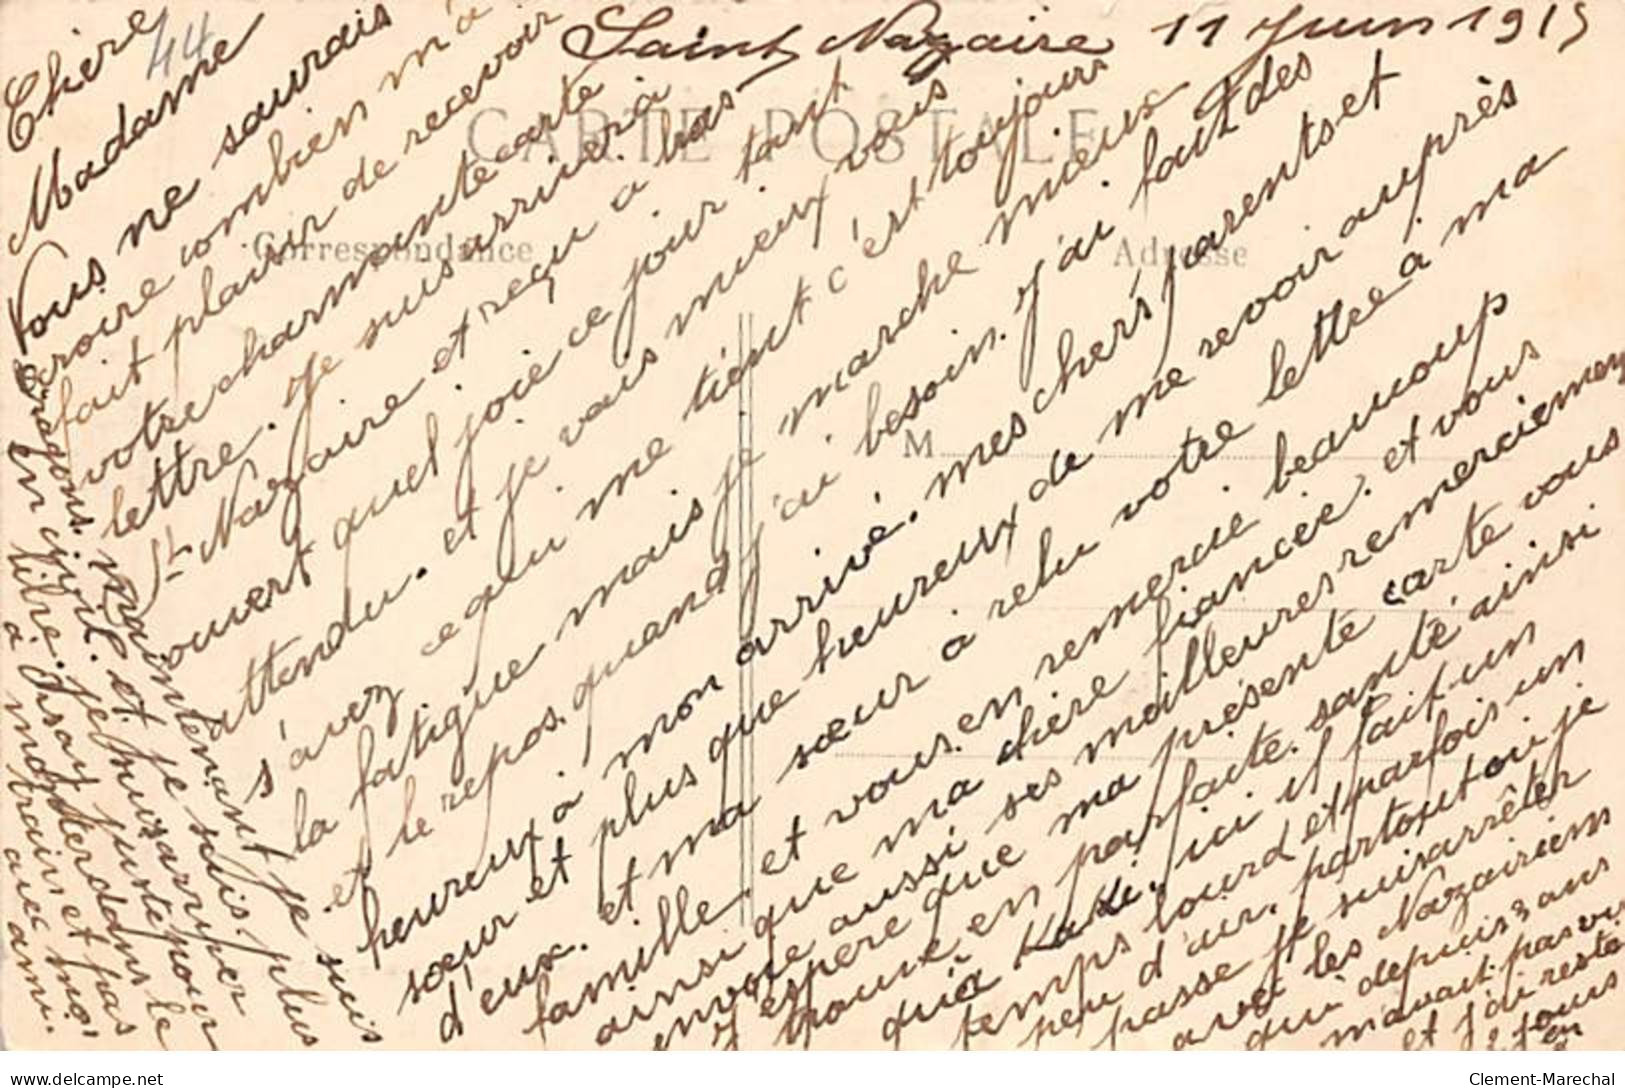 Saint Nazaire 11 Juin 1915
44
CARTE POSTALE
Correspondance
Adresse
M
Chère
Madame
Vous ne saurais
croire combien m'a
fait plaisir de recevoir
votre charmante carte
lettre. Je suis arriver à
St Nazaire et reçu a bras
ouvert quel joie ce jour tant
attendu. et je vais mieux vous
s'avez ce qui me tient c'est toujours
la fatigue mais je marche mieux
et le repos quand j'ai besoin. j'ai fait des
heureux a mon arrivé. mes chers parents et
sœur et plus que heureux de me revoir auprès
d'eux. et ma sœur à relu votre lettre à ma
famille. et vous en remerci beaucoup
ainsi que ma chère fiancée. et vous
envoie aussi ses meilleures remerciemen
j'espère que ma présente carte vous
trouve en parfaite santé ainsi
qu'à Kaki. ici il fait un
temps lourd et parfois un
peu d'air. partout où je
passe je suis arrêter
avec les Nazairiens
qui depuis 3 ans
m'avait pas vu
et j'ai resté
2 jours
en
maintenant je suis
en civil. et je suis plus
libre. je
juste pour
le
train et pas
avec moi
ami.